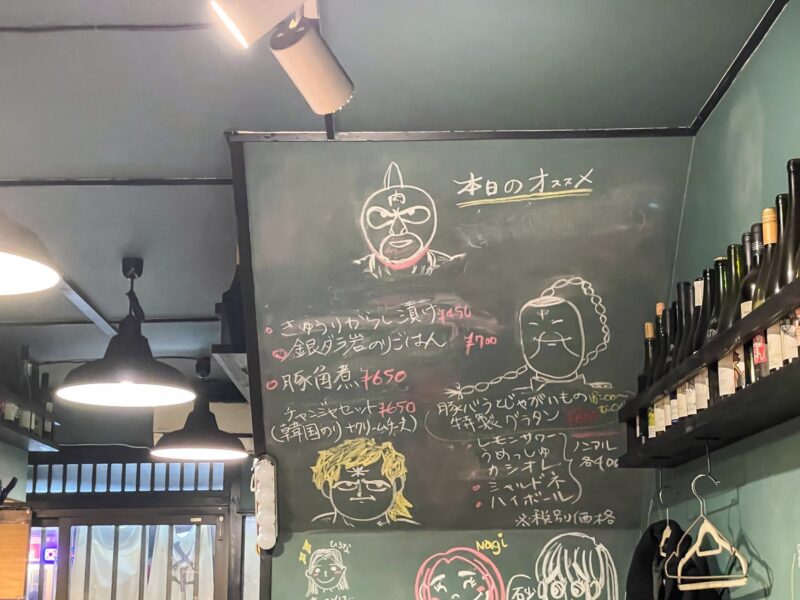 本日のオススメ
肉
きゅうりからし漬け ¥450
銀ダラ岩のりごはん ¥700
豚角煮 ¥650
チャンジャセット ¥650
(韓国のり+クリームチーズ)
中
豚バラとじゃがいもの
特製グラタン ¥800
レモンサワー
うめっしゅ
カシオレ
シャルドネ
ハイボール
ノンアル
各400
※税別価格
米
ひろな
Nagi
砂